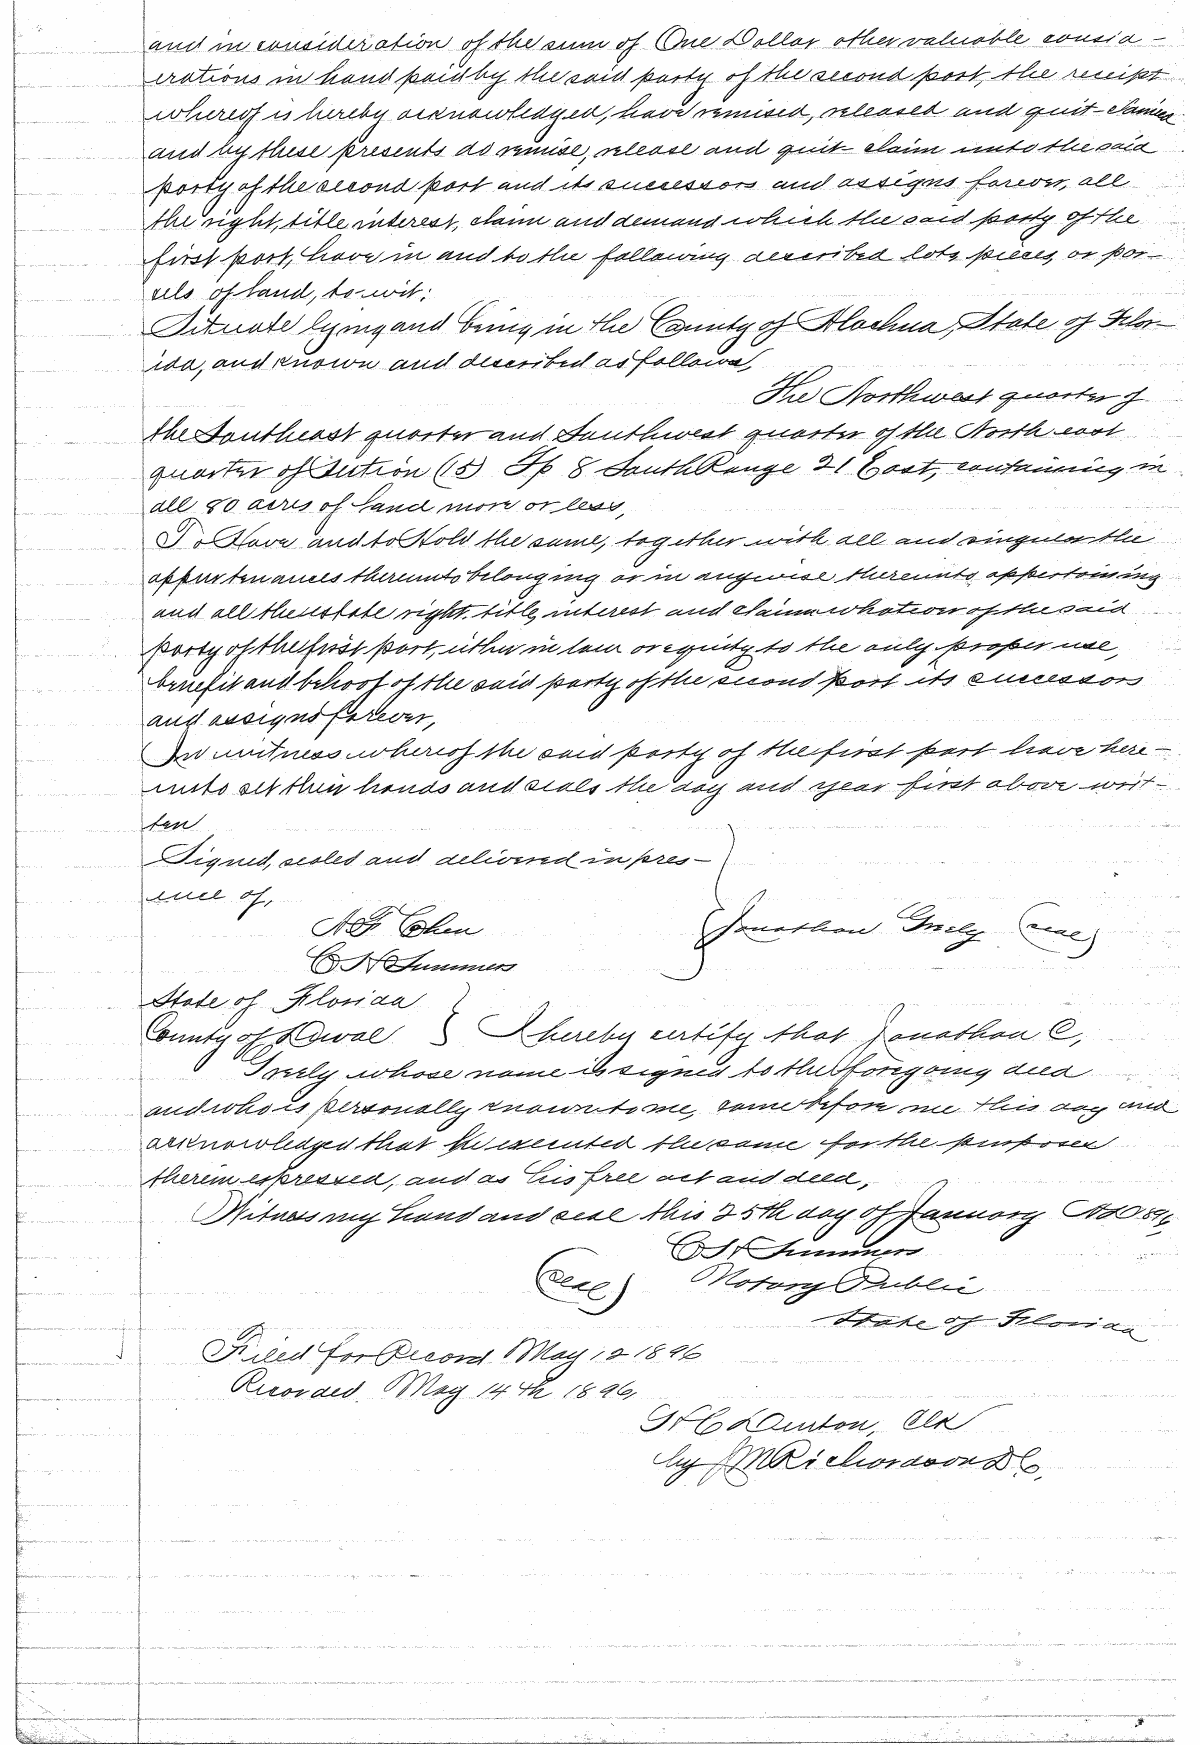 and in consideration of the sum of One Dollar other valuable consid-
erations in hand paid by the said party of the second part, the receipt
whereof is hereby acknowledged, have remised, released and quit-claimed
and by these presents do remise, release and quit-claim unto the said
party of the second part and its successors and assigns forever, all
the right, title interest, claim and demand which the said party of the
first part, have in and to the following described lots, pieces, or par-
cels of land, to-wit:
Situate lying and being in the County of Alachua, State of Flor-
ida, and known and described as follows,
The Northwest quarter of
the Southeast quarter and Southwest quarter of the North east
quarter of Section (5) Tp 8 South Range 21 East, containing in
all 80 acres of land more or less,
To Have and to Hold the same, together with all and singular the
appurtenances thereunto belonging or in anywise thereunto appertaining
and all the estate right, title, interest and claim whatsoever of the said
party of the first part, either in law or equity to the only proper use,
benefit and behoof of the said party of the second part its successors
and assigns forever,
In witness whereof the said party of the first part have here-
unto set their hands and seals the day and year first above writ-
ten
Signed, sealed and delivered in pres-
ence of,
A F Cohen
Jonathan Greely (seal)
C H Summers
State of Florida
County of Duval } I hereby certify that Jonathan C,
Greely whose name is signed to the foregoing deed
and who is personally known to me, came before me this day and
acknowledged that he executed the same for the purposes
therein expressed, and as his free act and deed,
Witness my hand and seal this 25th day of January AD 1896
C H Summers
(seal) Notary Public
State of Florida
Filed for Record May 12 1896
Recorded May 14th 1896,
H C Denton, Clk
by J M Richardson D C,